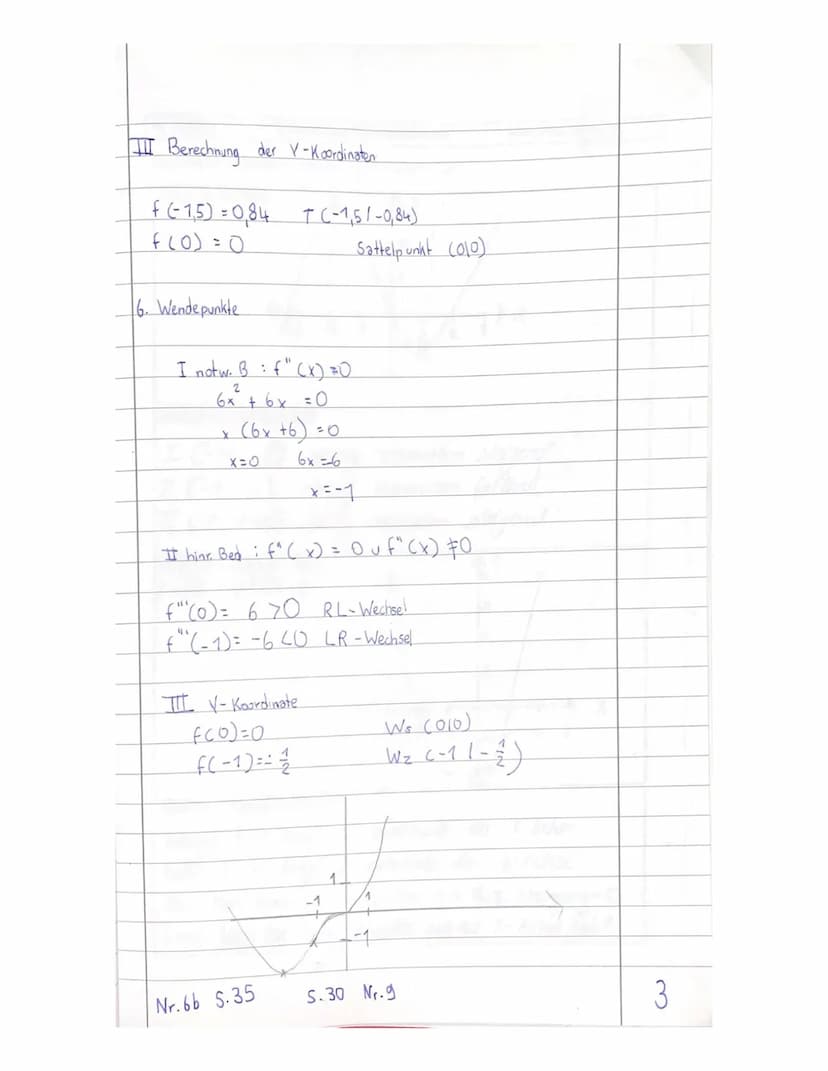 III Berechnung der Y-Koordinaten
f(-1,5) = 0,84 T(-1,5/-0,84)
f(0) = 0 Sattelpunkt (0|0)
6. Wendepunkte
I notw. B : f"(x) = 0
6x² + 6x = 0
x (6x +6) = 0
x=0 6x=-6
x = -1
II hinr. Bed : f"(x) = 0 ∪ f"(x) ≠ 0
f"'(0) = 6 > 0 RL-Wechsel
f"'(-1) = -6 < 0 LR-Wechsel
III Y-Koordinate
f(0)=0 Ws (0|0)
f(-1) = -1/2 W2 (-1 | -1/2)
1
-1 1
-1
Nr.6b S.35 S.30 Nr.9 3